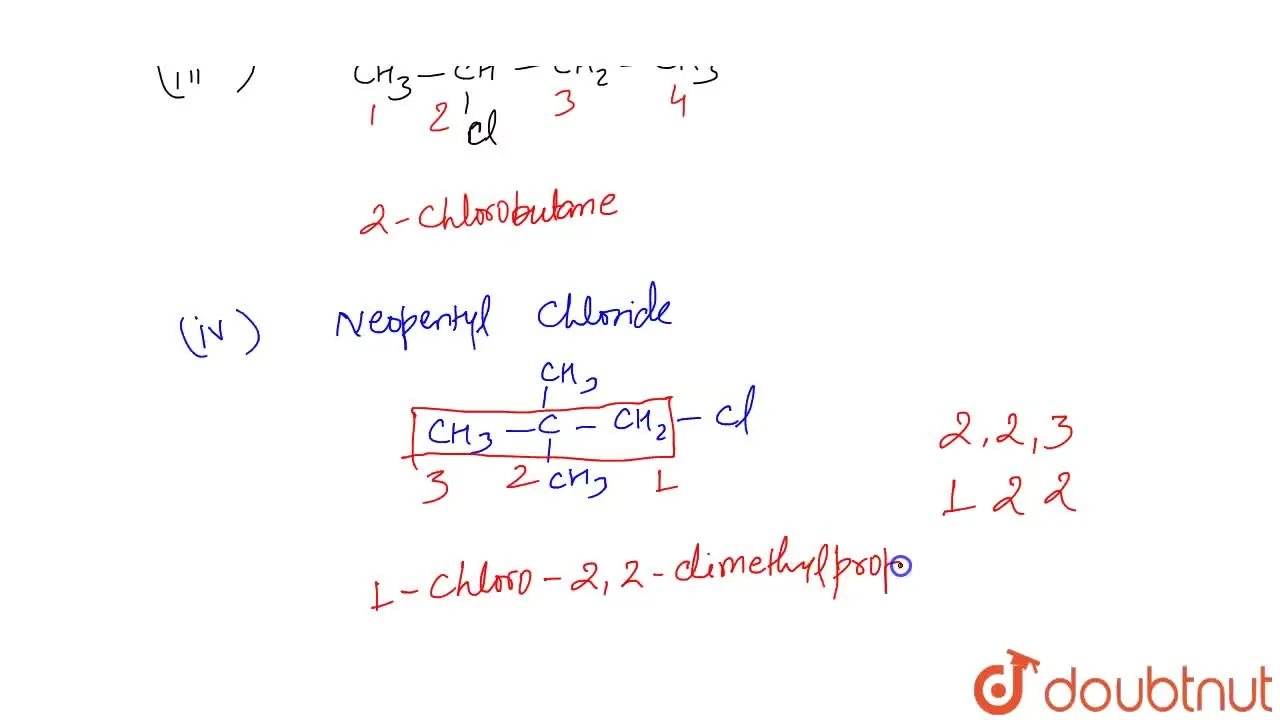 (iii) CH3 – CH – CH2 – CH3
1 2 3 4
Cl
2-Chlorobutane
(iv) Neopentyl Chloride
CH3
CH3 – C – CH2 – Cl
3 2 CH3 1
2,2,3
1 2 2
1-Chloro-2,2-dimethylprop
doubtnut